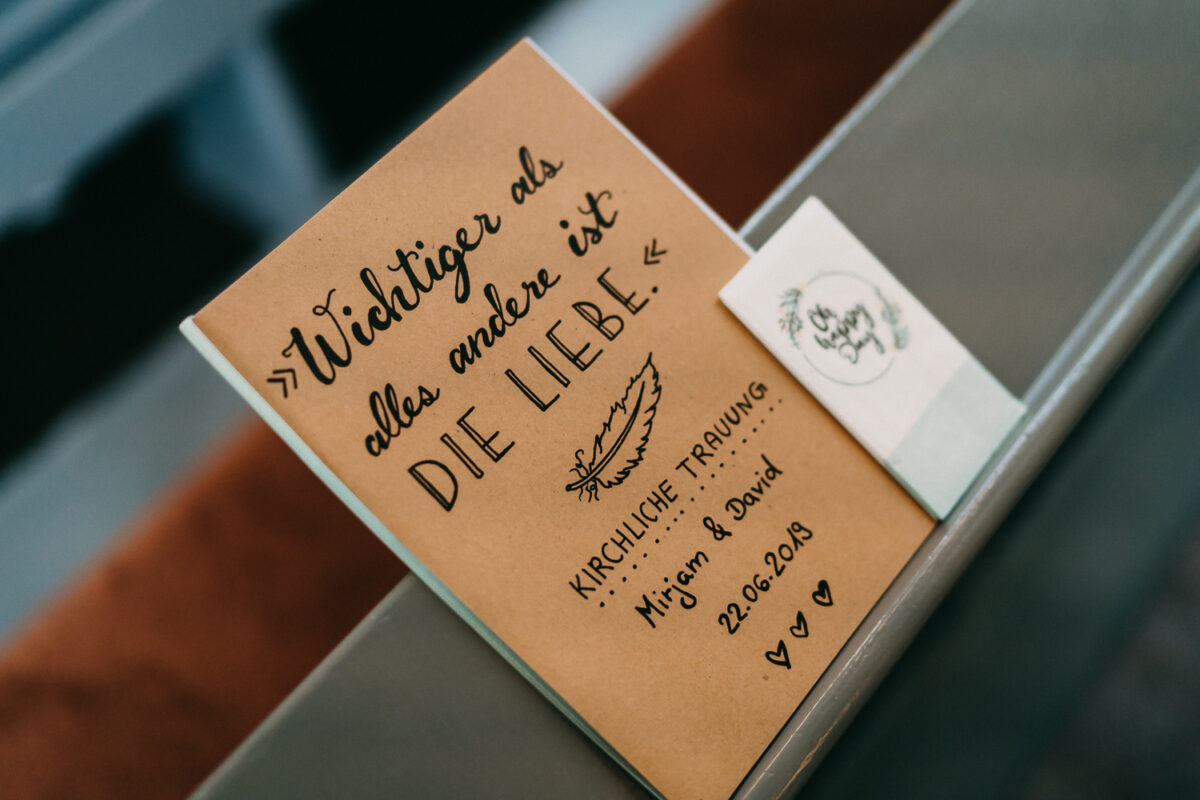 »Wichtiger als
alles andere ist
DIE LIEBE.«
KIRCHLICHE TRAUUNG
Mirjam & David
22.06.2019
Oh
happy
Day